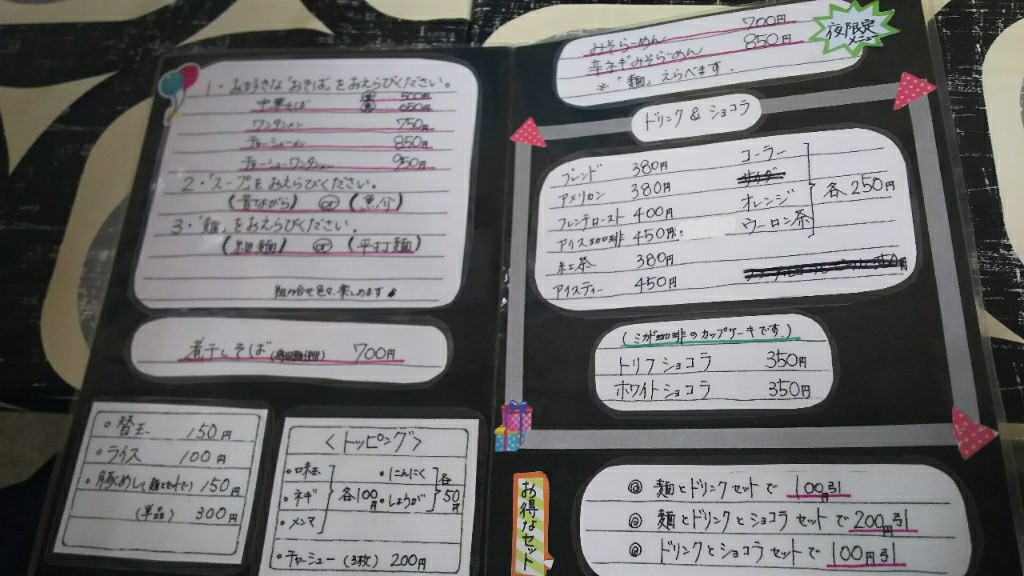 1・お好きな「おそば」をおえらびください。
中華そば
650円
ワンタンメン 750円
チャーシューメン 850円
チャーシューワンタンメン 950円
2・「スープ」をおえらびください。
(昔ながら) or (魚介)
3・「麺」をおえらびください。
(細麺) or (平打麺)
組み合せ色々、楽しめます♪
煮干しそば 700円
・替玉 150円
・ライス 100円
・豚めし(麺とセットで) 150円
(単品) 300円
<トッピング>
・味玉
・ネギ 各100円
・メンマ
・にんにく
・しょうが 各50円
・チャーシュー (3枚) 200円
みそらーめん 700円
辛ネギみそらーめん 850円
※「麺」えらべます。
夜限定
ドリンク & ショコラ
ブレンド 380円
アメリカン 380円
フレンチロースト 400円
アイス珈琲 450円
紅茶 380円
アイスティー 450円
コーラー
オレンジ
ウーロン茶
各、250円
(ミカド珈琲のカップケーキです)
トリフショコラ 350円
ホワイトショコラ 350円
お得なセット
◎ 麺とドリンクセットで 100円引
◎ 麺とドリンクとショコラセットで 200円引
◎ ドリンクとショコラセットで 100円引